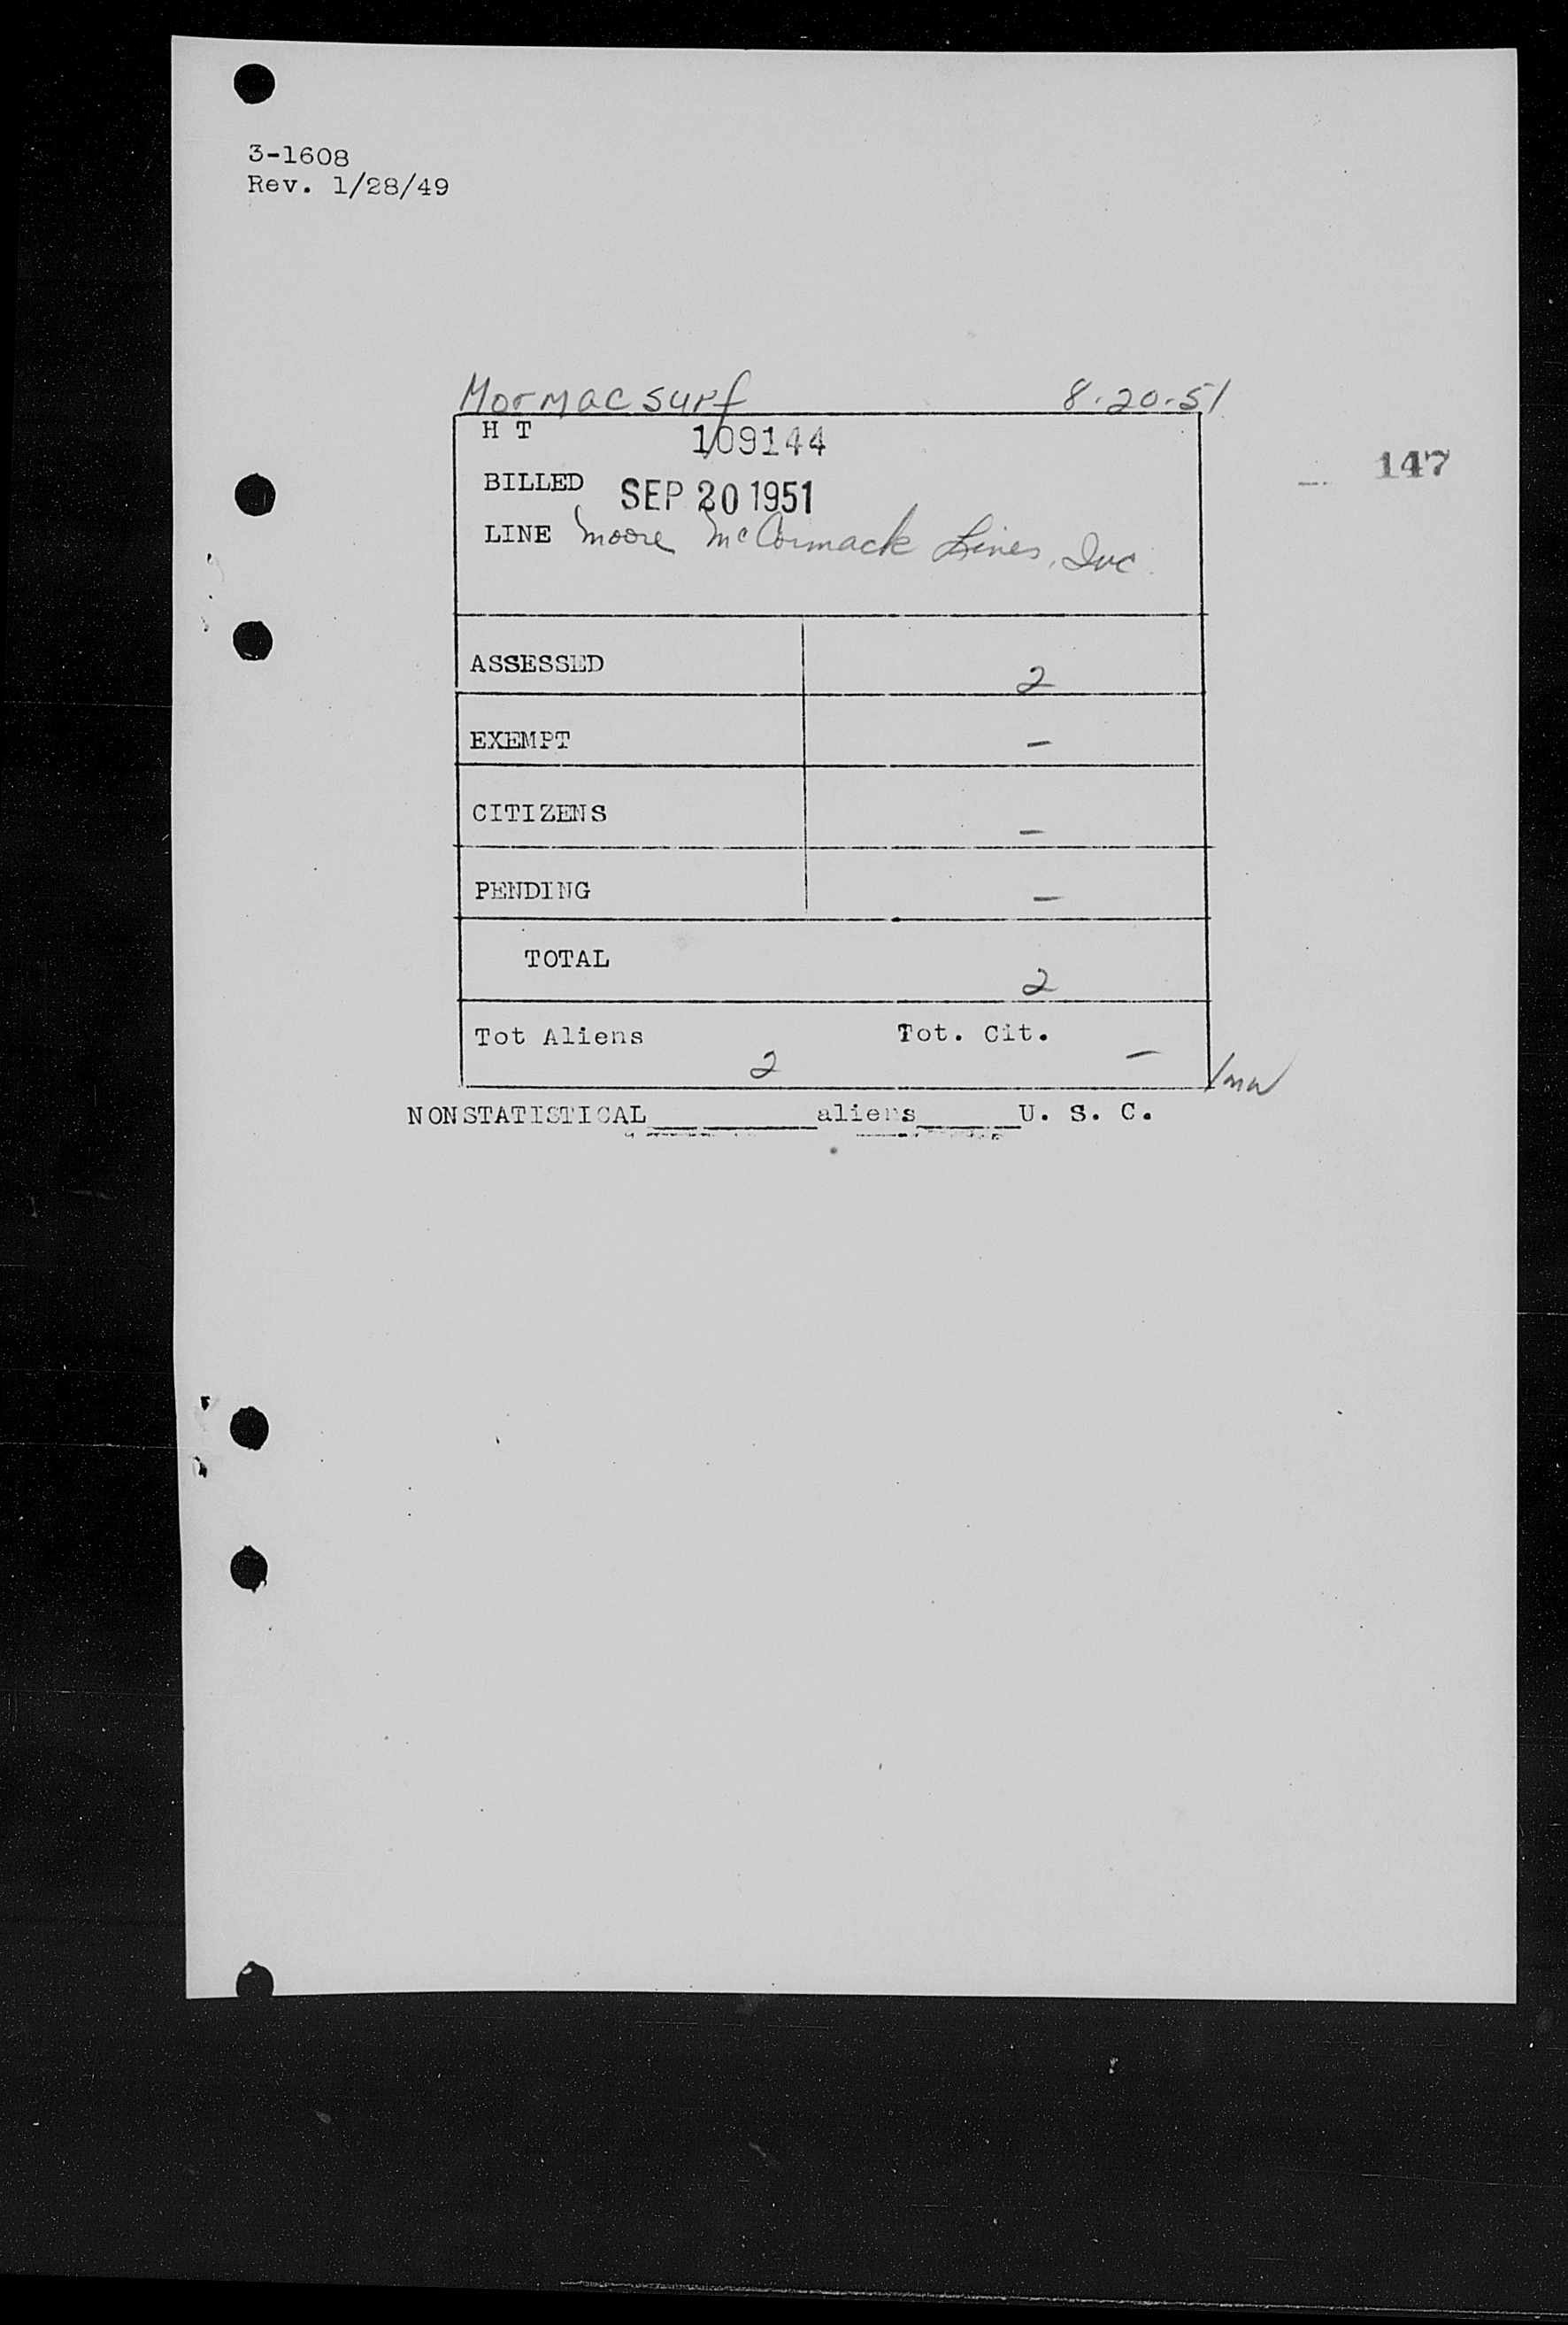 3-1608
Rev. 1/28/49
Mormacsurf 8.20.51
H T 109144
147
BILLED SEP 20 1951
LINE Moore McCormack Lines, Inc.
ASSESSED 2
EXEMPT –
CITIZENS –
PENDING –
TOTAL 2
Tot Aliens 2 Tot. Cit. –
NONSTATISTICAL________aliens_____U. S. C.